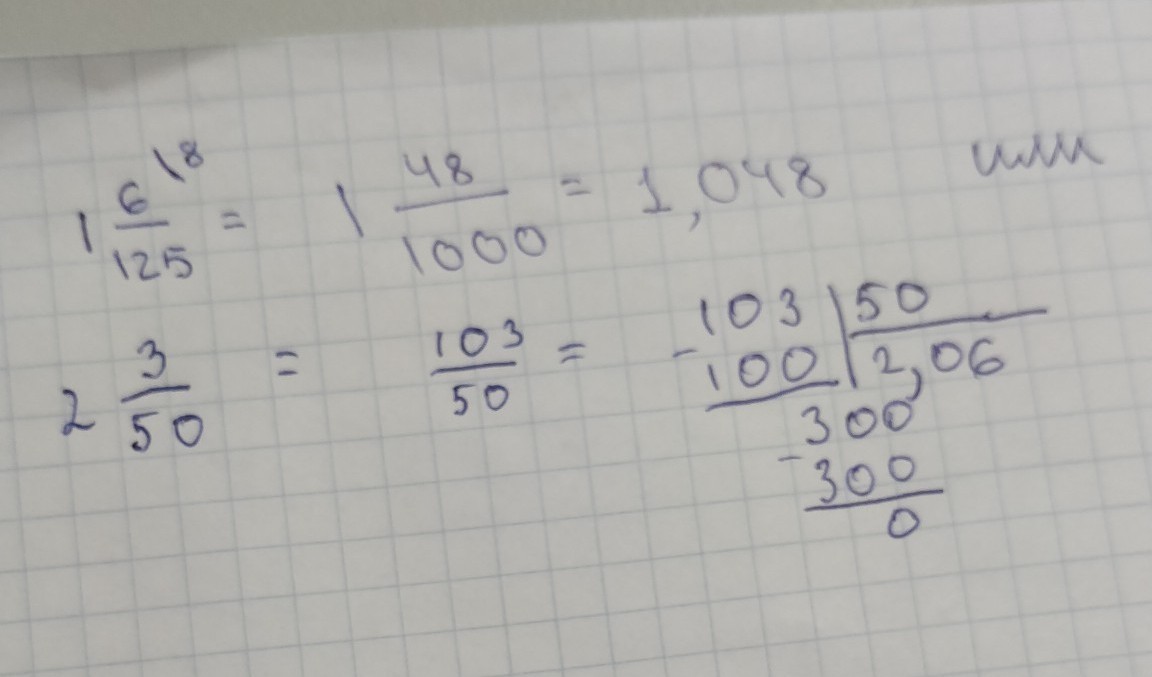 1 6/125 \8 = 1 48/1000 = 1,048 или
2 3/50 = 103/50 = - 103 | 50
100 | 2,06
- 300
300
0